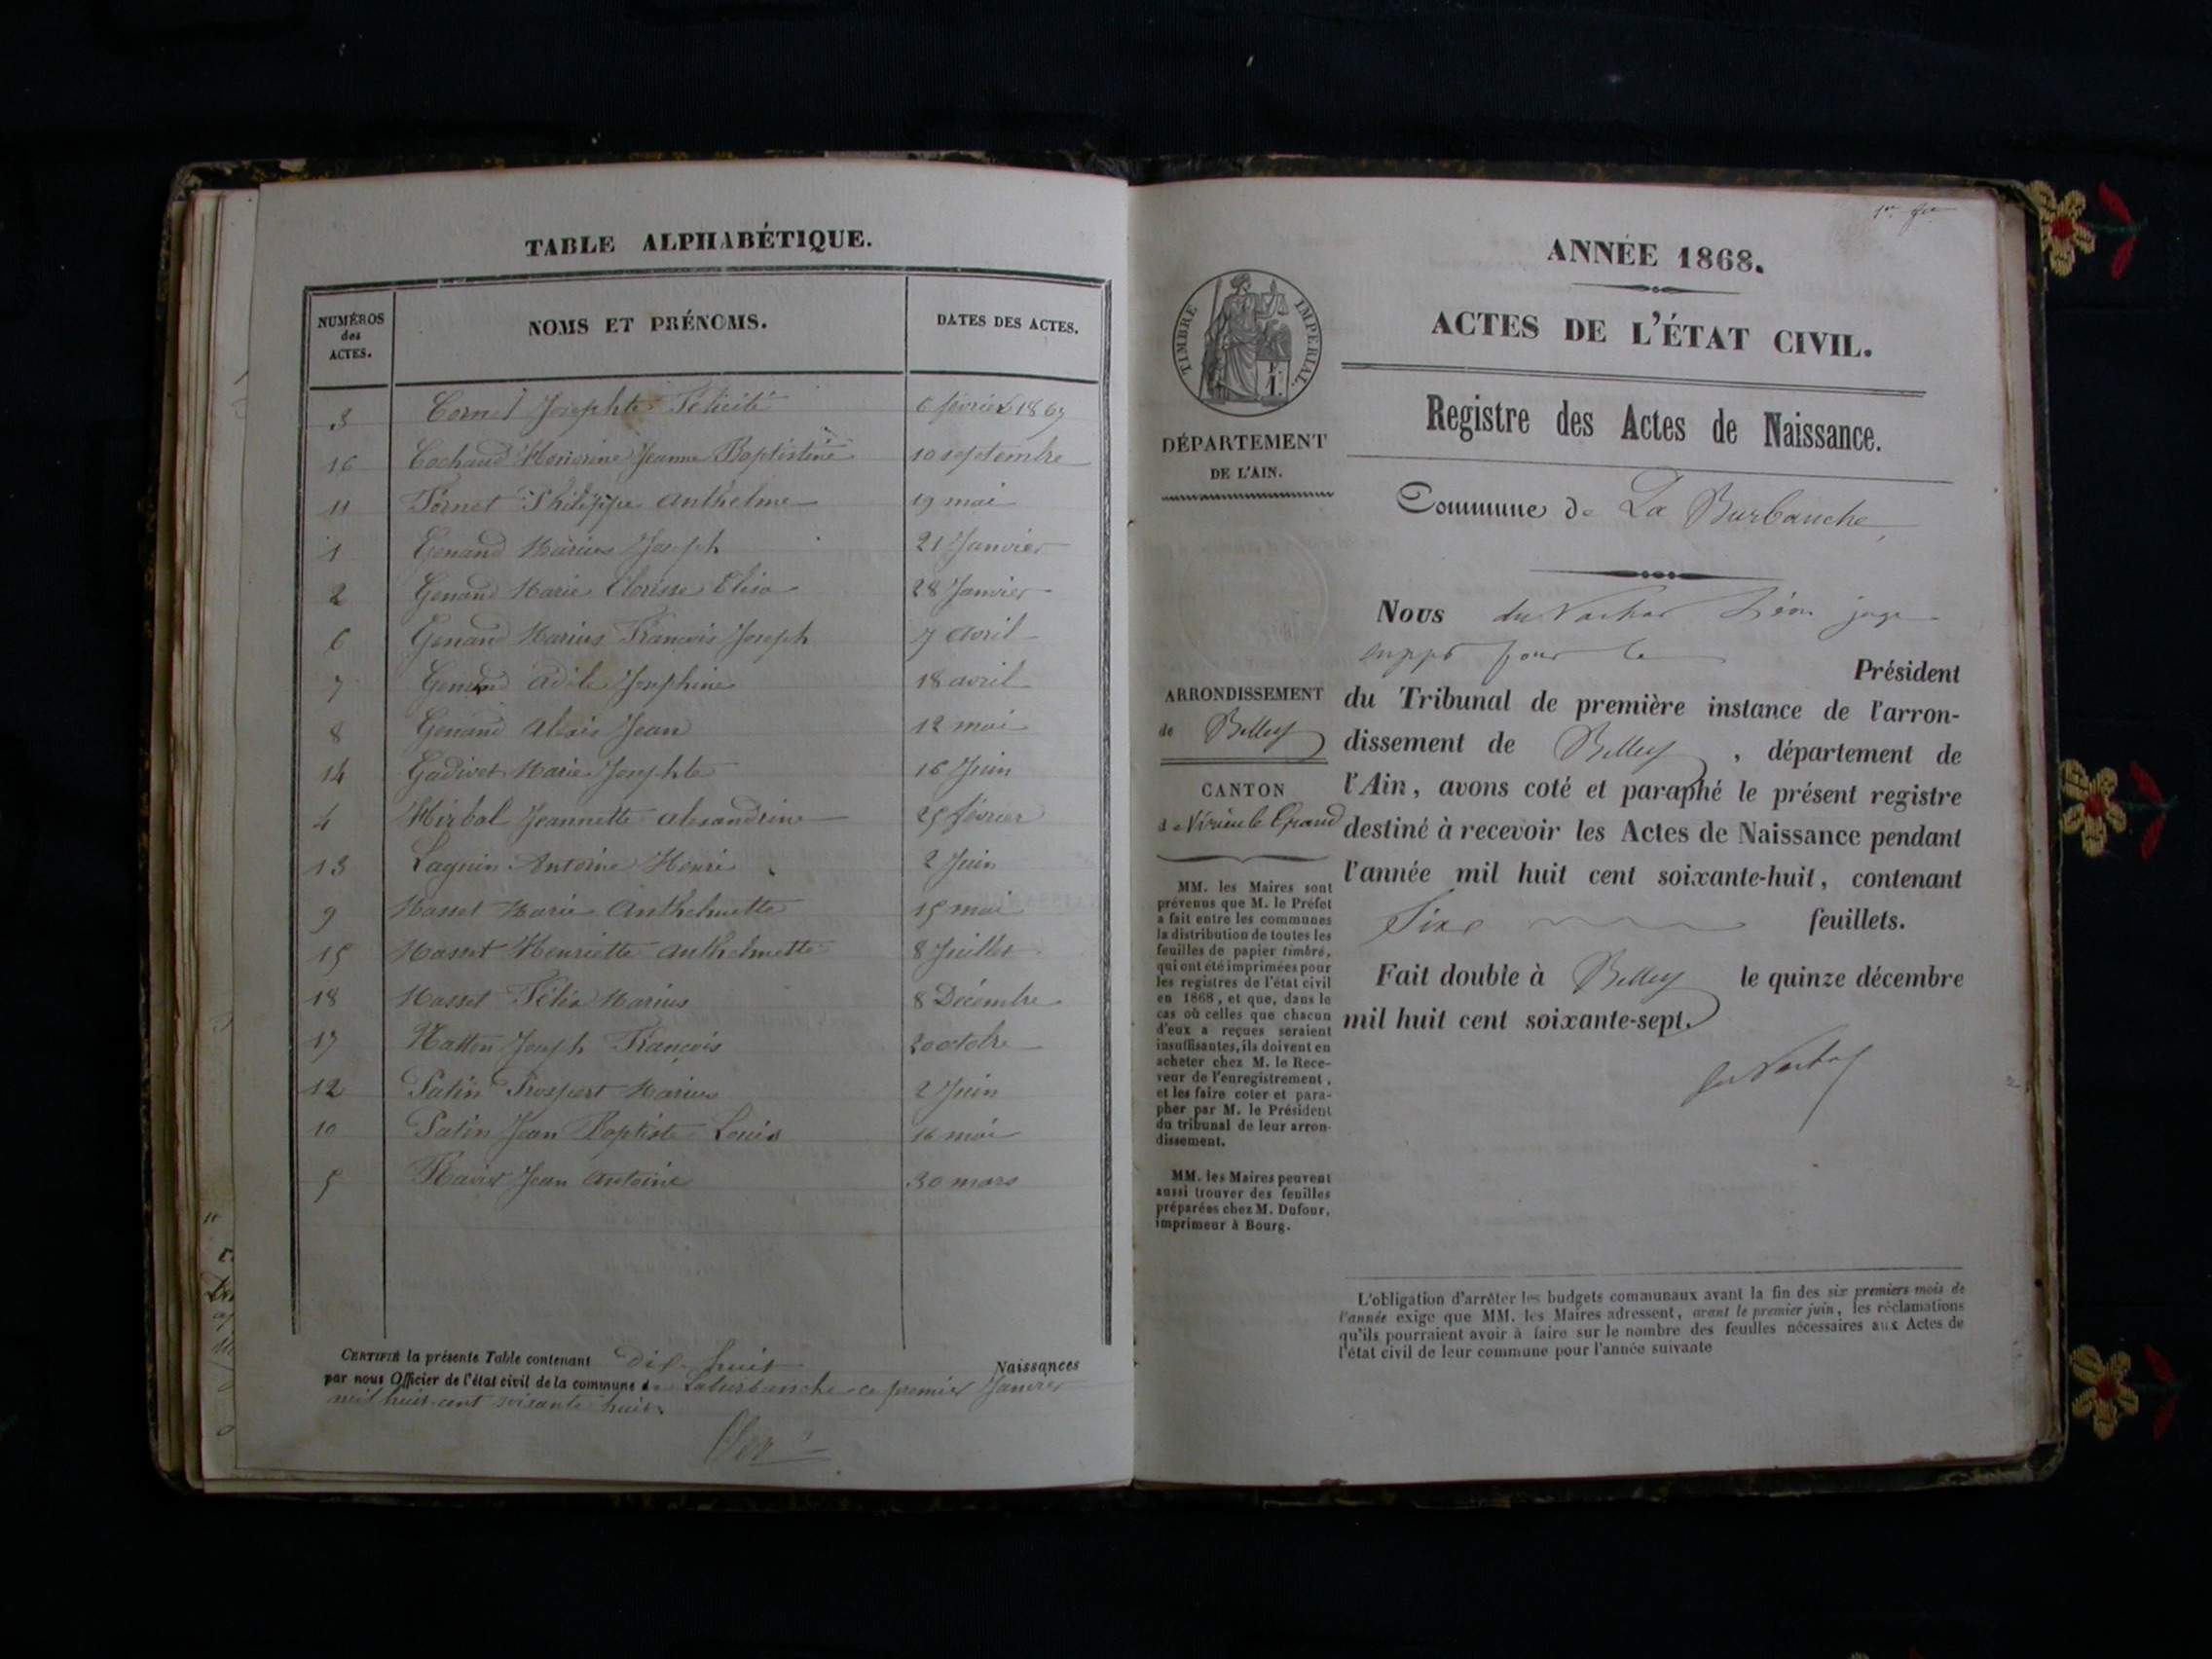 TABLE ALPHABÉTIQUE.
NUMÉROS des ACTES. NOMS ET PRÉNOMS. DATES DES ACTES.
3 Cornet Josephte Félicité 6 février 1867
16 Cochaud Honorine Jeanne Baptistine 10 septembre
11 Fornet Philippe Anthelme 19 mai
1 Genand Marius Joseph 21 Janvier
2 Genand Marie Clorisse Elisa 28 Janvier
6 Genand Marius François Joseph 7 avril
7 Genand Adèle Josephine 18 avril
8 Genand Alexis Jean 12 mai
14 Gadivet Marie Josephte 16 Juin
4 Jeannette Alexandrine 25 février
13 Lagnin Antoine Henri 2 Juin
9 Masset Marie Anthelmette 15 mai
15 Masset Henriette Anthelmette 8 Juillet
18 Masset Félix Marius 8 Décembre
17 Matton Joseph François 20 octobre
12 Patin Prospert Marius 2 Juin
10 Patin Jean Baptiste Louis 16 mai
5 Ravit Jean Antoine 30 mars
CERTIFIÉ la présente Table contenant Dix-huit Naissances
par nous Officier de l'état civil de la commune de Laburbanche ce premier Janvier
mil huit cent soixante huit.
1er
ANNÉE 1868.
ACTES DE L'ÉTAT CIVIL.
TIMBRE IMPÉRIAL.
Registre des Actes de Naissance.
DÉPARTEMENT
DE L'AIN.
Commune de La Burbanche
Nous Léon juge
suppt pour le
Président
ARRONDISSEMENT
de Belley
CANTON
de Virieu le Grand
du Tribunal de première instance de l'arron-
dissement de Belley, département de
l'Ain, avons coté et paraphé le présent registre
destiné à recevoir les Actes de Naissance pendant
l'année mil huit cent soixante-huit, contenant
Sixe feuillets.
Fait double à Belley le quinze décembre
mil huit cent soixante-sept.
MM. les Maires sont
prévenus que M. le Préfet
a fait entre les communes
la distribution de toutes les
feuilles de papier timbré,
qui ont été imprimées pour
les registres de l'état civil
en 1868, et que, dans le
cas où celles que chacun
d'eux a reçues seraient
insuffisantes, ils doivent en
acheter chez M. le Rece-
veur de l'enregistrement,
et les faire coter et para-
pher par M. le Président
du tribunal de leur arron-
dissement.
MM. les Maires peuvent
aussi trouver des feuilles
préparées chez M. Dufour,
imprimeur à Bourg.
L'obligation d'arrêter les budgets communaux avant la fin des six premiers mois de
l'année exige que MM. les Maires adressent, avant le premier juin, les réclamations
qu'ils pourraient avoir à faire sur le nombre des feuilles nécessaires aux Actes de
l'état civil de leur commune pour l'année suivante